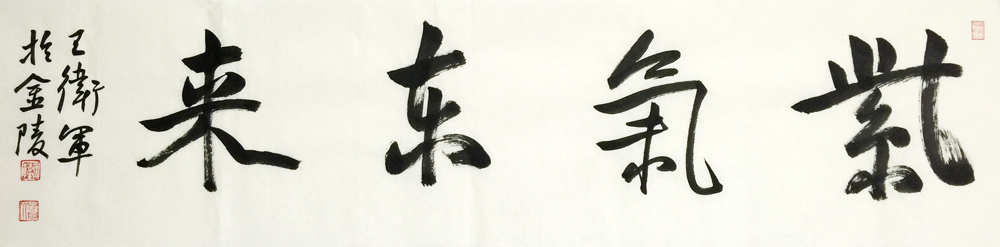 紫氣东来
王衛軍
於金陵